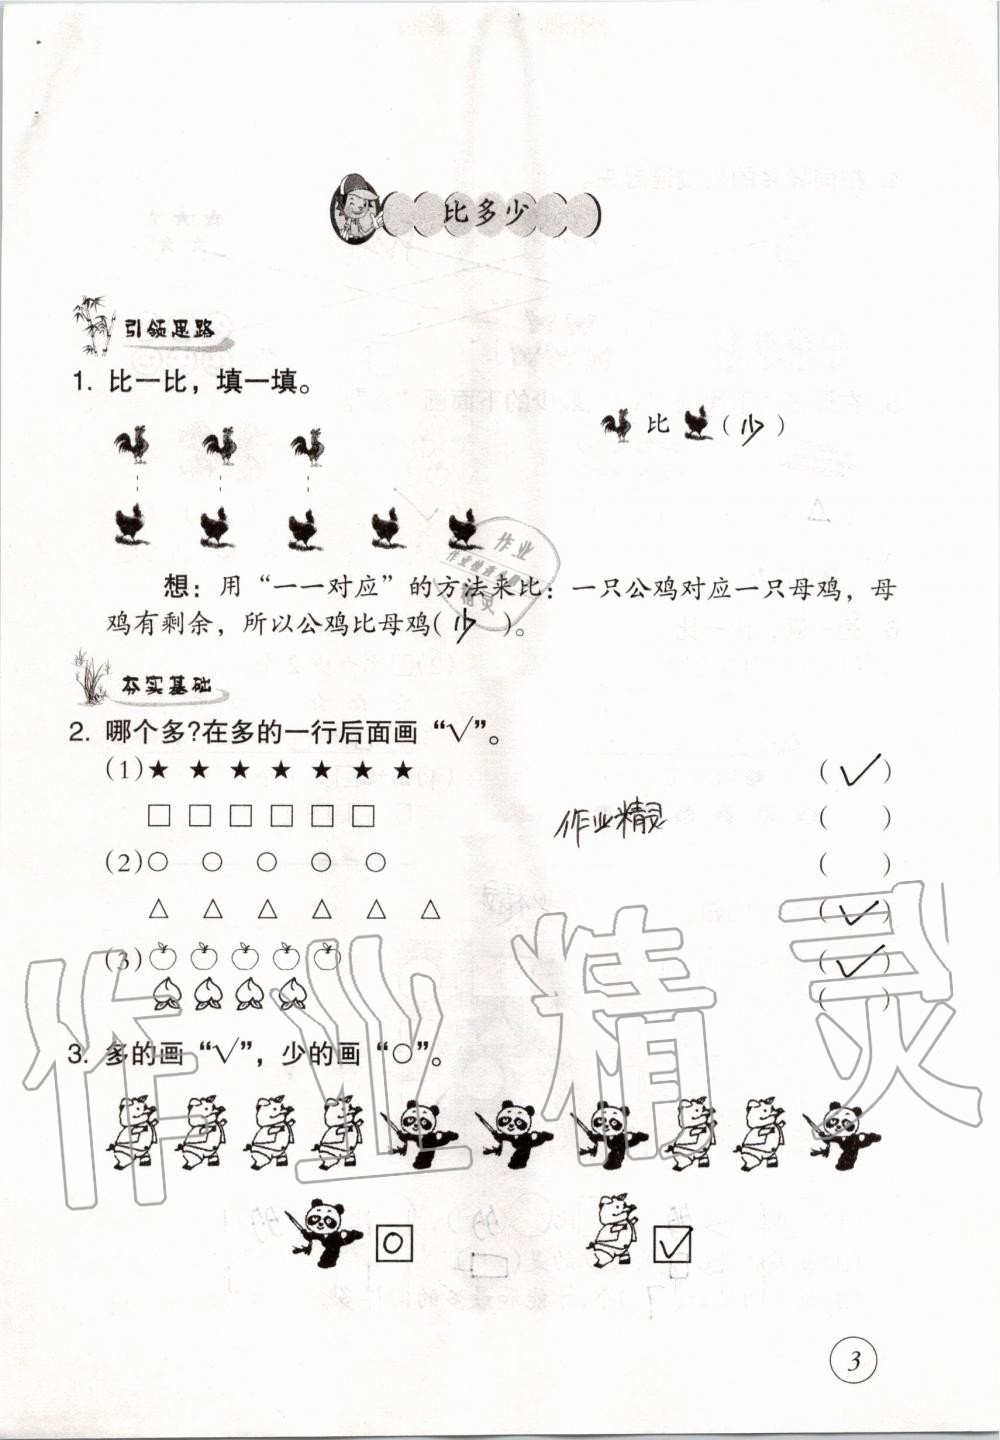 比多少
引领思路
1. 比一比，填一填。
比（少）
想：用“一一对应”的方法来比：一只公鸡对应一只母鸡，母
鸡有剩余，所以公鸡比母鸡(少)。
夯实基础
2. 哪个多?在多的一行后面画“√”。
(1)★ ★ ★ ★ ★ ★ ★ (√)
□ □ □ □ □ □ ( )
作业精灵
(2)○ ○ ○ ○ ○ ( )
△ △ △ △ △ △ (√)
(3) (√)
( )
3. 多的画“√”，少的画“○”。
○ √
3
作业精灵
作业
精灵